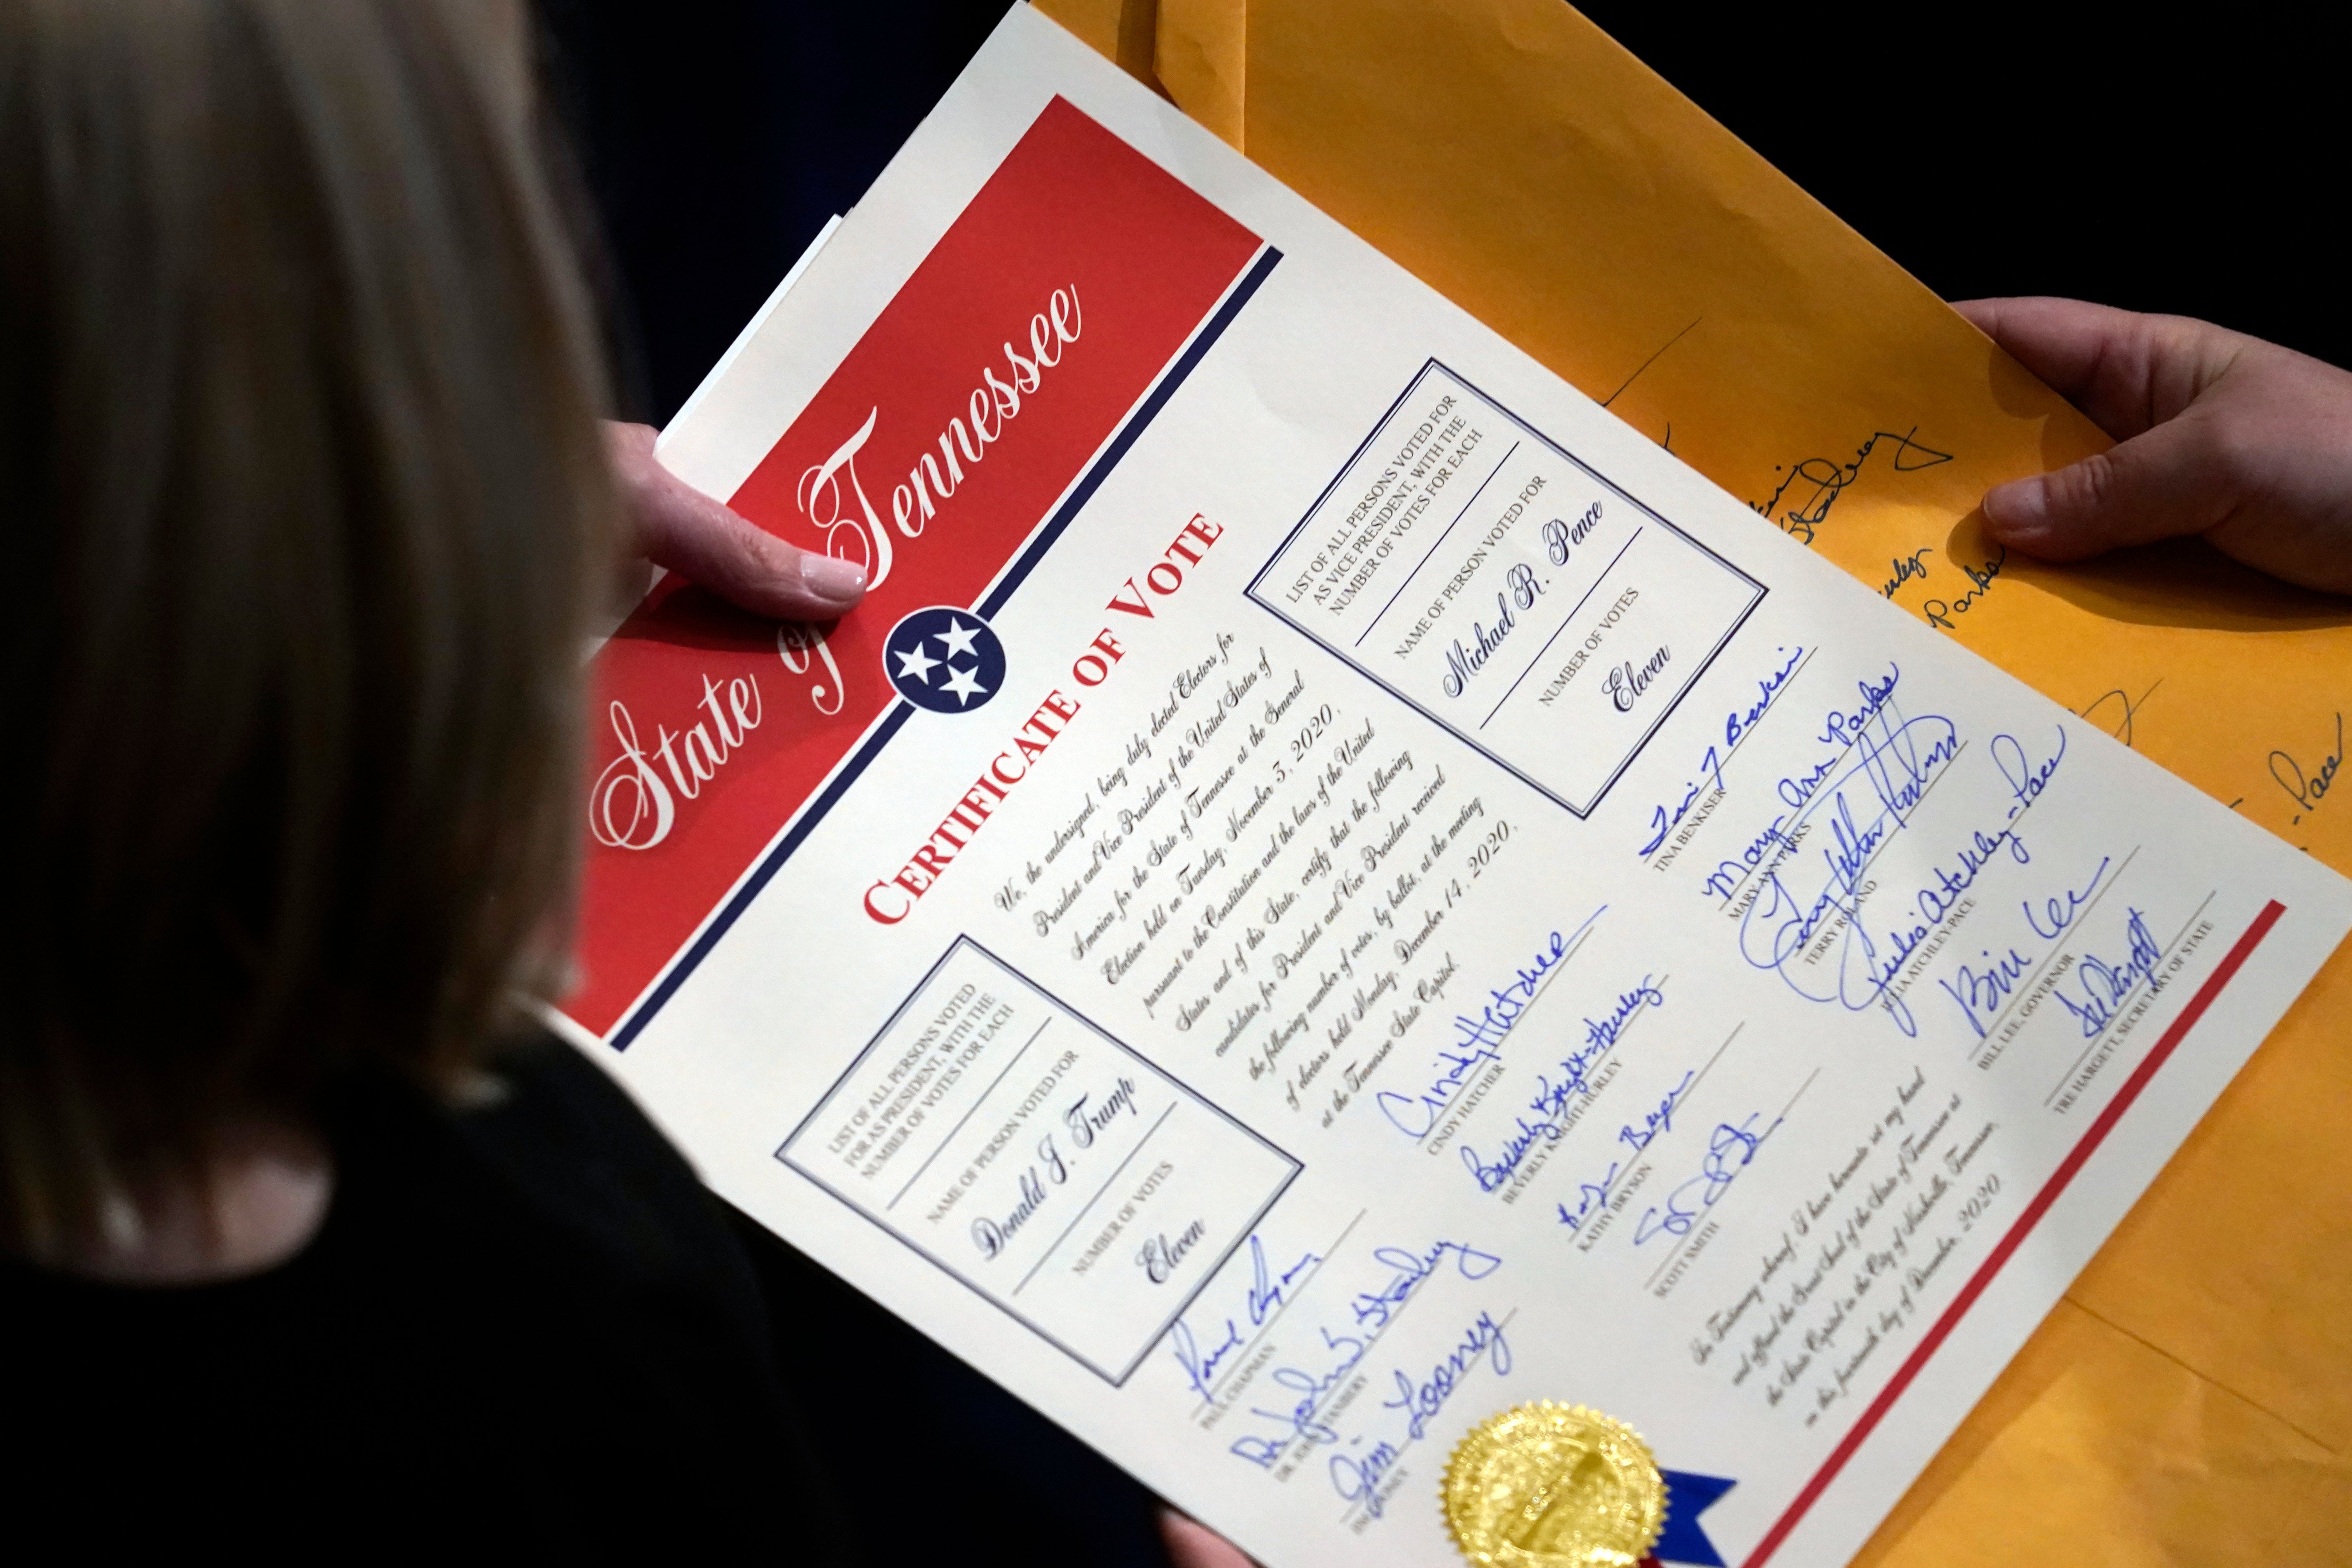 State of Tennessee
CERTIFICATE OF VOTE
We, the undersigned, being duly elected Electors for
President and Vice President of the United States of
America for the State of Tennessee at the General
Election held on Tuesday, November 3, 2020,
pursuant to the Constitution and the laws of the United
States and of this State, certify that the following
candidates for President and Vice President received
the following number of votes, by ballot, at the meeting
of electors held Monday, December 14, 2020,
at the Tennessee State Capitol.
LIST OF ALL PERSONS VOTED
FOR AS PRESIDENT, WITH THE
NUMBER OF VOTES FOR EACH
NAME OF PERSON VOTED FOR
Donald J. Trump
NUMBER OF VOTES
Eleven
LIST OF ALL PERSONS VOTED FOR
AS VICE PRESIDENT, WITH THE
NUMBER OF VOTES FOR EACH
NAME OF PERSON VOTED FOR
Michael R. Pence
NUMBER OF VOTES
Eleven
Paul Chapman
PAUL CHAPMAN
Dr John L. Stanbery
DR. JOHN STANBERY
Jim Looney
JIM LOONEY
Cindy Hatcher
CINDY HATCHER
Beverly Knight-Hurley
BEVERLY KNIGHT-HURLEY
Kathy Bryson
KATHY BRYSON
SCOTT SMITH
Tina J Benkiser
TINA BENKISER
Mary Ann Parks
MARY ANN PARKS
TERRY ROLAND
Julia Atchley-Pace
JULIA ATCHLEY-PACE
Bill Lee
BILL LEE, GOVERNOR
Tre Hargett
TRE HARGETT, SECRETARY OF STATE
In Testimony whereof, I have hereunto set my hand
and affixed the Great Seal of the State of Tennessee at
the State Capitol in the City of Nashville, Tennessee,
on this fourteenth day of December, 2020
Parks
-Pace